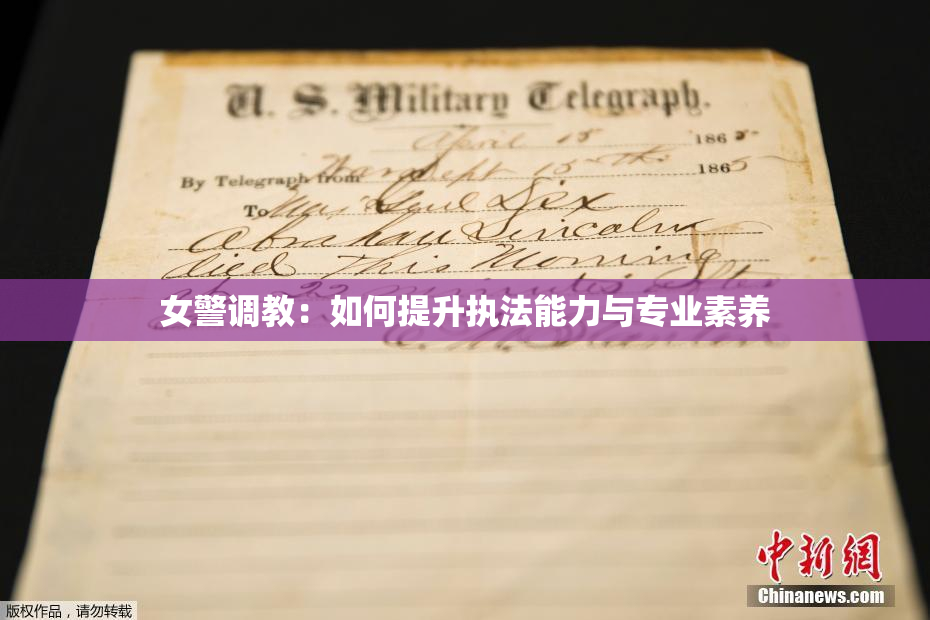 U. S. Military Telegraph.
April 15 1865
By Telegraph from War Dept 15th 1865
To Maj Genl Dix
Abraham Lincoln
died This Morning
at 22 minutes after
女警调教：如何提升执法能力与专业素养
E. M. Stanton
中新网
Chinanews.com
版权作品，请勿转载